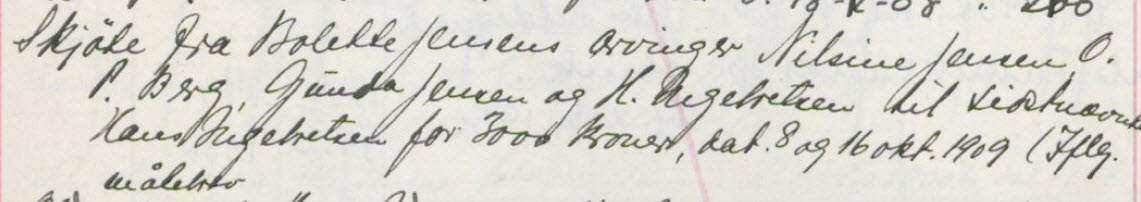 Skjöte fra Bolette Jensens arvinger Nilsine Jensen, O.
P. Berg, Gunda Jensen og H. Ingebretsen til sidstnævnte
Hans Ingebretsen for 3000 kroner, dat. 8 og 16 okt. 1909 (Iflg.
målebrev